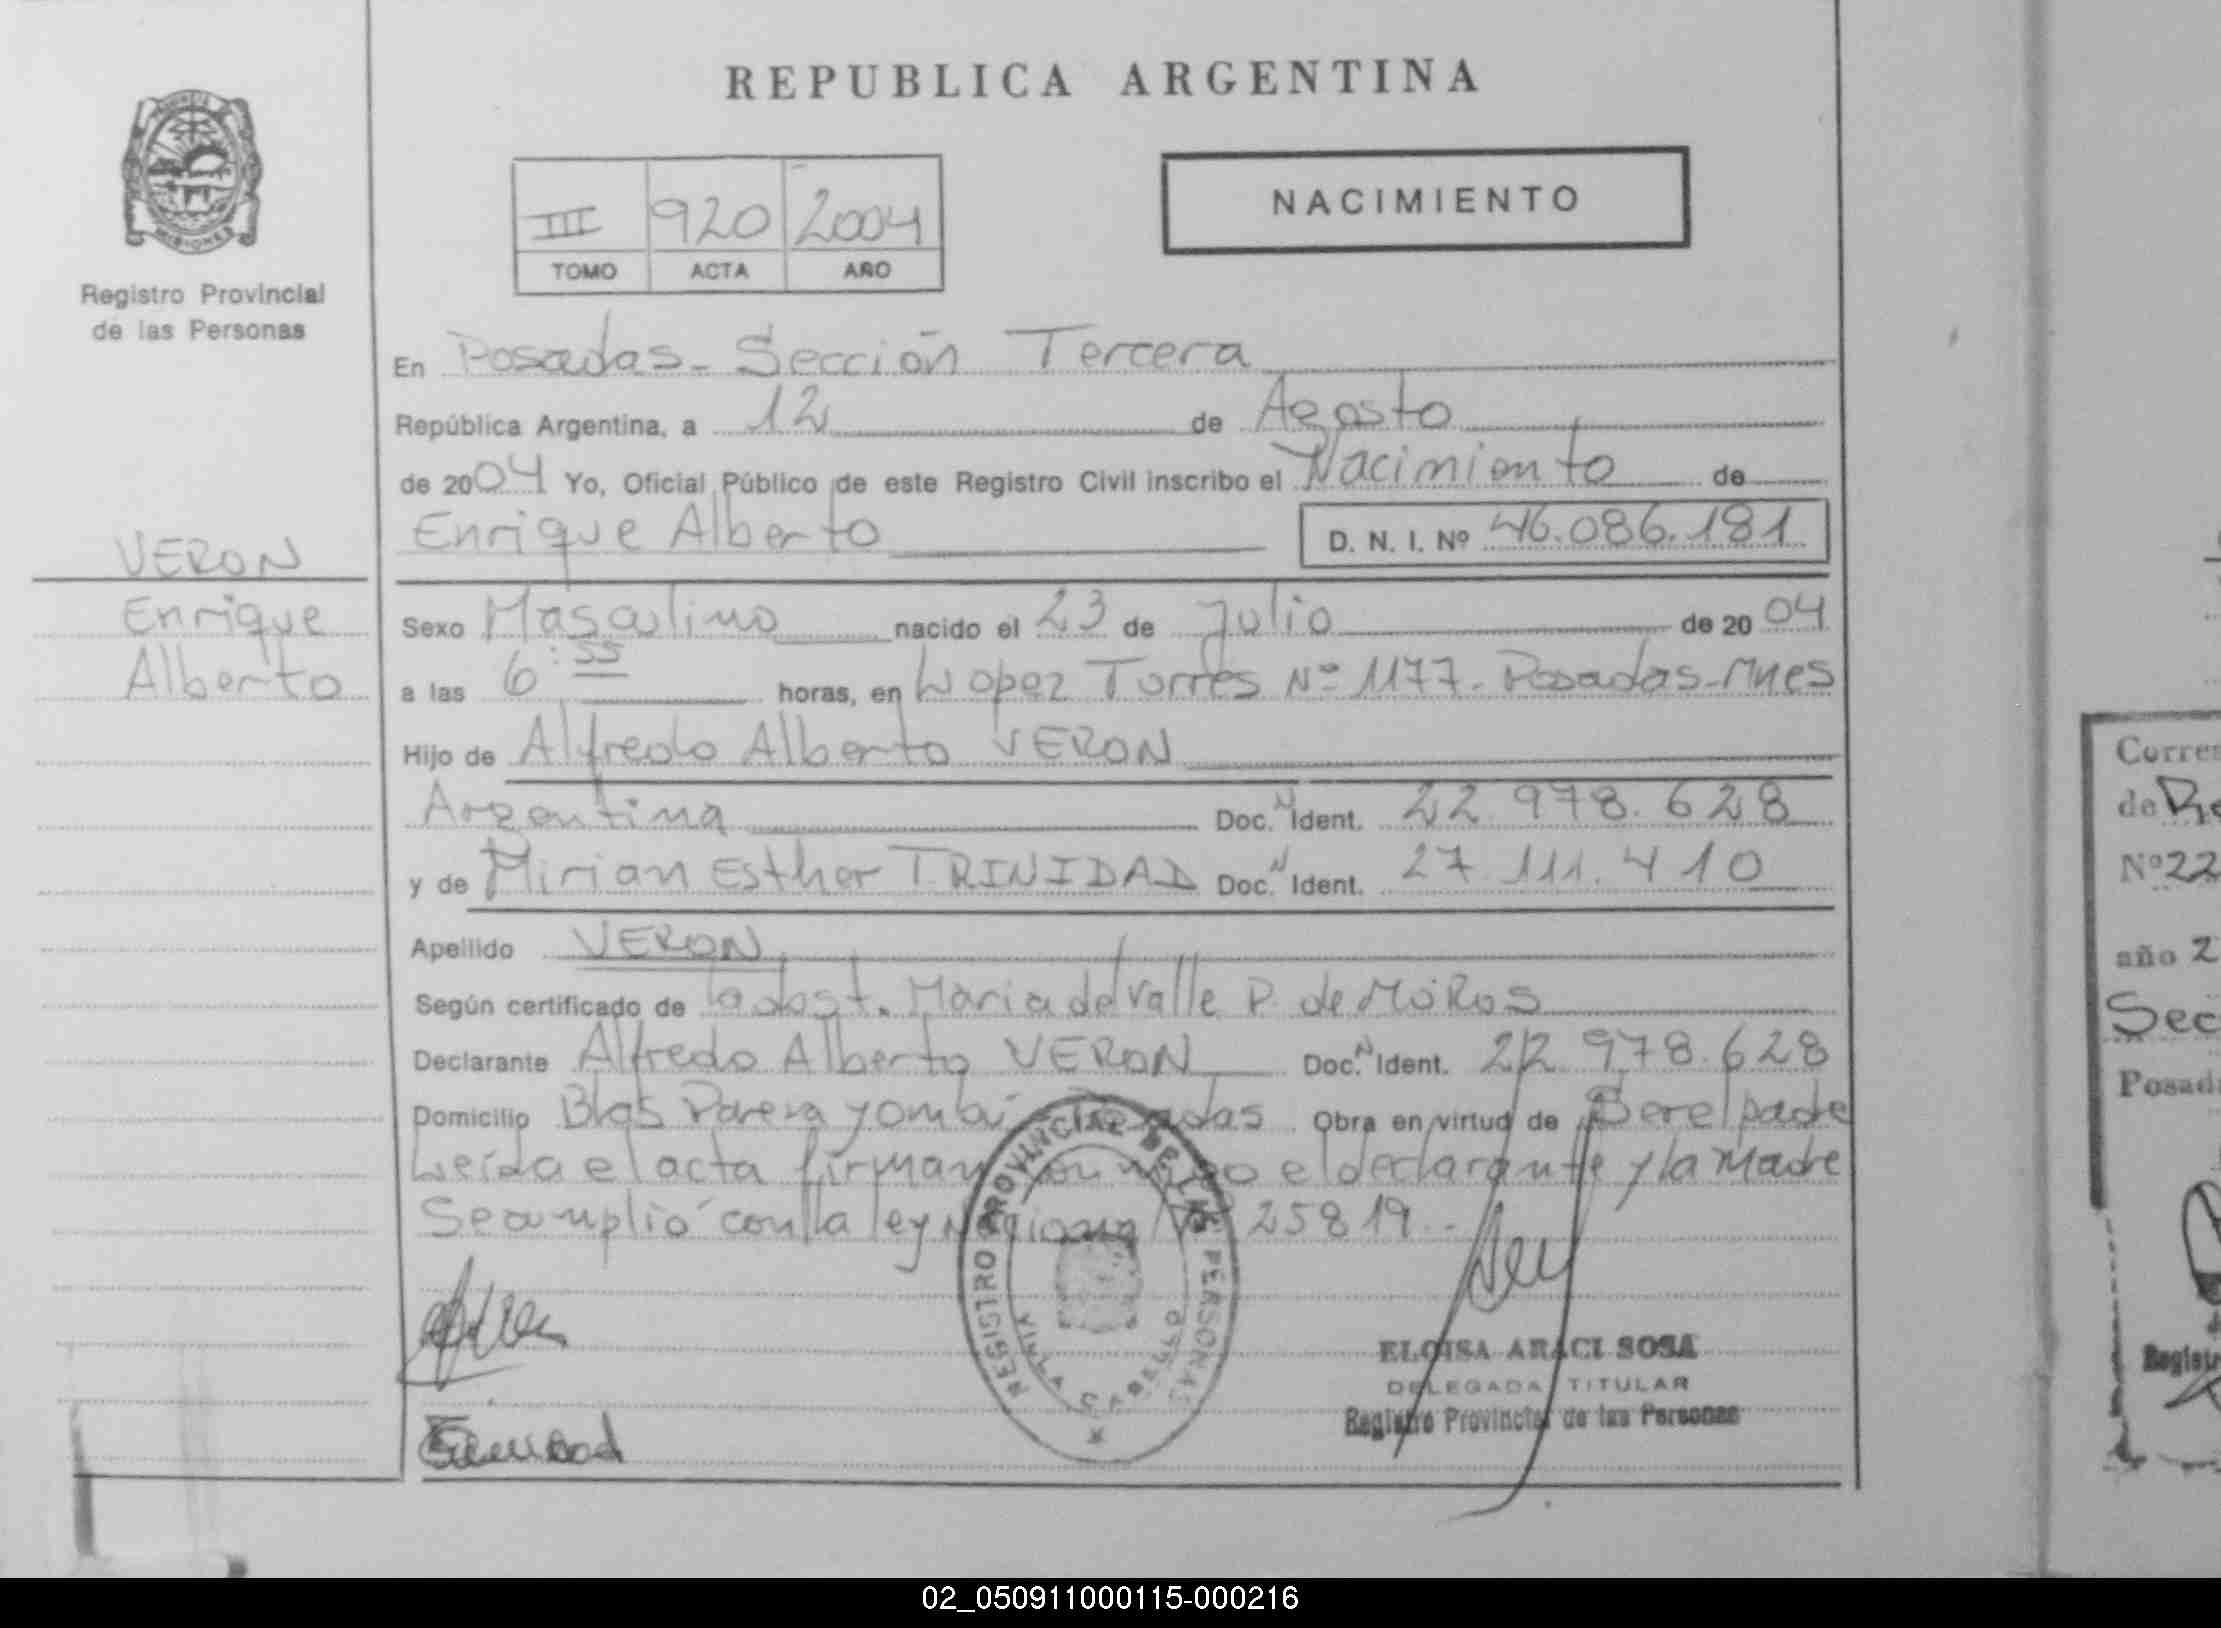 REPUBLICA ARGENTINA
PROVINCIA DE
MISIONES
Registro Provincial
de las Personas
III 920 2004
TOMO ACTA AÑO
NACIMIENTO
En Posadas- Sección Tercera
República Argentina, a 12 de Agosto
de 2004 Yo, Oficial Público de este Registro Civil inscribo el Nacimiento de
Enrique Alberto D. N. I. Nº 46.086.181
VERON
Enrique
Alberto
Sexo Masculino nacido el 23 de Julio de 2004
a las 6:55 horas, en Lopez Torres Nº 1177- Posadas-Mnes
Hijo de Alfredo Alberto VERON
Argentina Doc. N Ident. 22.978.628
y de Mirian Esther TRINIDAD Doc. N Ident. 27.111.410
Apellido VERON
Según certificado de la obst. Maria del Valle P. de MOROS
Declarante Alfredo Alberto VERON Doc. N Ident. 22.978.628
Domicilio Blas Parera y ombú Posadas Obra en virtud de Ser el padre
Leída el acta firman conmigo el declarante y la madre
Se cumplió con la ley Nacional Nº 25819.-
REGISTRO PROVINCIAL DE LAS PERSONAS
VILLA CABELLO
ELOISA ARACI SOSA
DELEGADA TITULAR
Registro Provincial de las Personas
Corres
de
Nº22
año 2
Sec
Posad
Registr
02_050911000115-000216